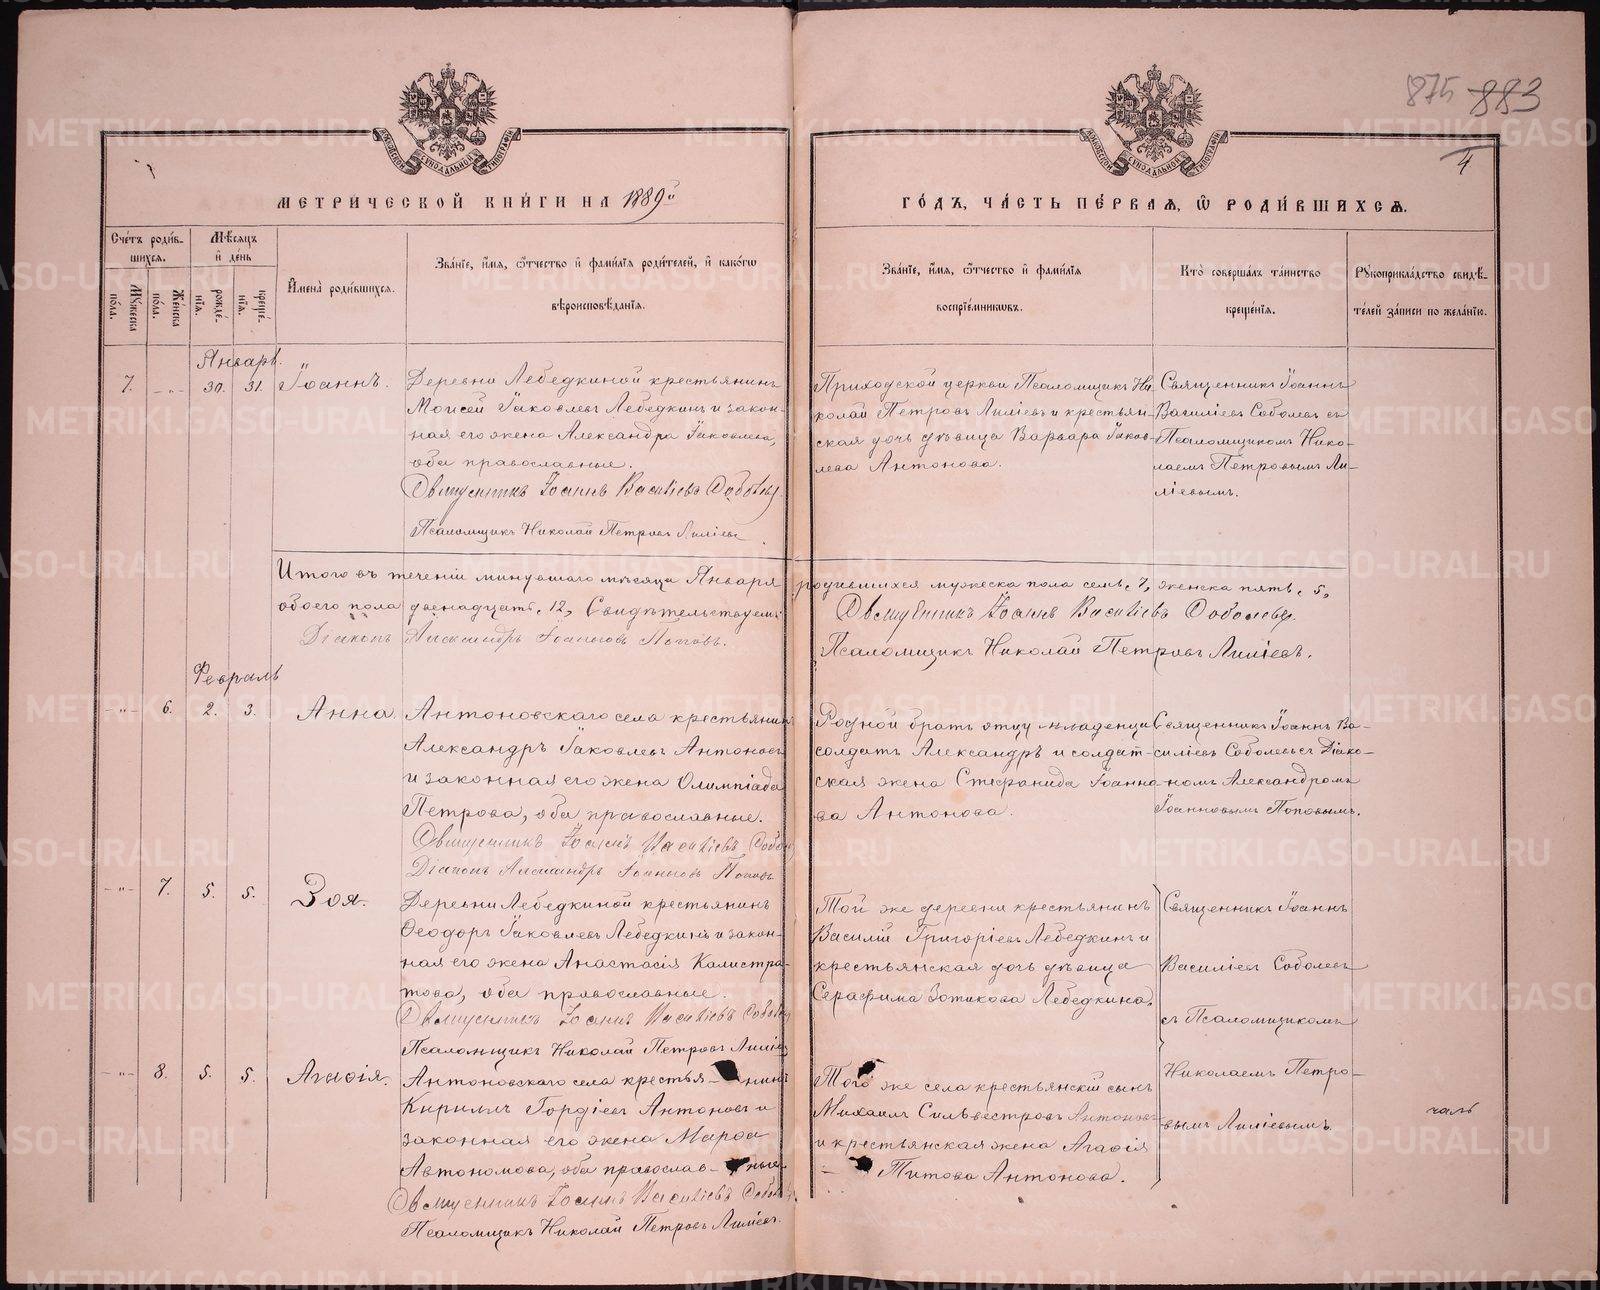 875 883
4
МОСКОВСКОЙ СѴНОДАЛЬНОЙ ТИПОГРАФІИ
МОСКОВСКОЙ СѴНОДАЛЬНОЙ ТИПОГРАФІИ
МЕТРИ́ЧЕСКОЙ КНИ́ГИ НА 1889й
ГО́ДЪ, ЧА́СТЬ ПЕ́РВАЯ, Ѽ РОДИ́ВШИХСЯ.
Сче́тъ роди́в-
шихся.
Му́жеска по́ла.
Же́нска по́ла.
Мѣ́сяцъ
и де́нь
рожде́-
нїя.
креще́-
нїя.
И҆мена̀ роди́вшихся.
Зва́нїе, и҆́мя, ѻ҆́тчество и҆ фами́лїя роди́телей, и҆ како́гѡ
вѣроисповѣ́данїя.
Зва́нїе, и҆́мя, ѻ҆́тчество и҆ фами́лїя
воспрїе́мникѡвъ.
Кто̀ соверша́лъ та́инство
креще́нїя.
Рꙋкоприкла́дство свидѣ́-
телей за́писи по жела́нїю.
Январь.
7. — „ — 30. 31. Іоаннъ.
Деревни Лебедкиной крестьянинъ
Моисей Іаковлевъ Лебедкинъ и закон-
ная его жена Александра Іаковлева,
оба православные.
Священникъ Іоаннъ Василіевъ Соболевъ
Псаломщикъ Николай Петровъ Лиліевъ
Приходской церкви Псаломщикъ Ни-
колай Петровъ Лиліевъ и крестьян-
ская дочь дѣвица Варвара Іаков-
лева Антонова.
Священникъ Іоаннъ
Василіевъ Соболевъ съ
Псаломщикомъ Нико-
лаемъ Петровымъ Ли-
ліевымъ.
Итого въ теченіи минувшаго мѣсяца Января родившихся мужеска пола семь, 7, женска пять, 5,
обоего пола двенадцать, 12, Свидѣтельствуемъ: Священникъ Іоаннъ Василіевъ Соболевъ.
Діаконъ Александръ Іоанновъ Поповъ.
Псаломщикъ Николай Петровъ Лиліевъ.
Февраль
— „ — 6. 2. 3. Анна
Антоновскаго села крестьянинъ
Александръ Іаковлевъ Антоновъ
и законная его жена Олимпіада
Петрова, оба православные.
Священникъ Іоаннъ Василіевъ Собол
Діаконъ Александръ Іоанновъ Поповъ
Родной братъ отцу младенца
солдатъ Александръ и солдат-
ская жена Стефанида Іоанно-
ва Антонова.
Священникъ Іоаннъ Ва-
силіевъ Соболевъ съ Діако-
номъ Александромъ
Іоанновымъ Поповымъ.
— „ — 7. 5. 5. Зоя.
Деревни Лебедкиной крестьянинъ
Ѳеодоръ Іаковлевъ Лебедкинъ и закон-
ная его жена Анастасія Калистра-
това, оба православные.
Священникъ Іоаннъ Василіевъ Соболев
Псаломщикъ Николай Петровъ Лиліев
Той же деревни крестьянинъ
Василій Григоріевъ Лебедкинъ и
крестьянская дочь дѣвица
Серафима Зотикова Лебедкина.
Священникъ Іоаннъ
Василіевъ Соболевъ
съ Псаломщикомъ
Николаемъ Петро-
вымъ Лиліевымъ.
— „ — 8. 5. 5. Агаѳія.
Антоновскаго села крестья-нинъ
Кириллъ Гордіевъ Антоновъ и
законная его жена Марѳа
Автономова, оба православ-ные.
Священникъ Іоаннъ Василіевъ Соболев
Псаломщикъ Николай Петровъ Лиліевъ.
Того же села крестьянскій сынъ
Михаилъ Сильвестровъ Антоновъ
и крестьянская жена Агаѳія
— Титова Антонова.